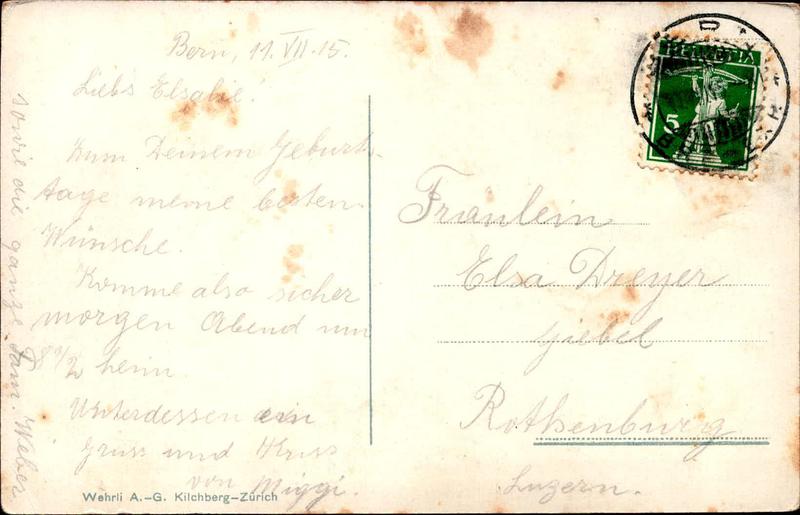 Bern, 11. VII. 15.
Liebs Elsabie!
Zum Deinem Geburts-
tage meine besten
Wünsche.
Komme also sicher
morgen Abend um
8 1/2 heim
Unterdessen ein
Gruss und Kuss
von Miggi.
sowie die ganze Fam. Weber
Wehrli A.-G. Kilchberg-Zürich
HELVETIA
5
Fräulein
Elsa Dreyer
Giebel
Rothenburg
Luzern.